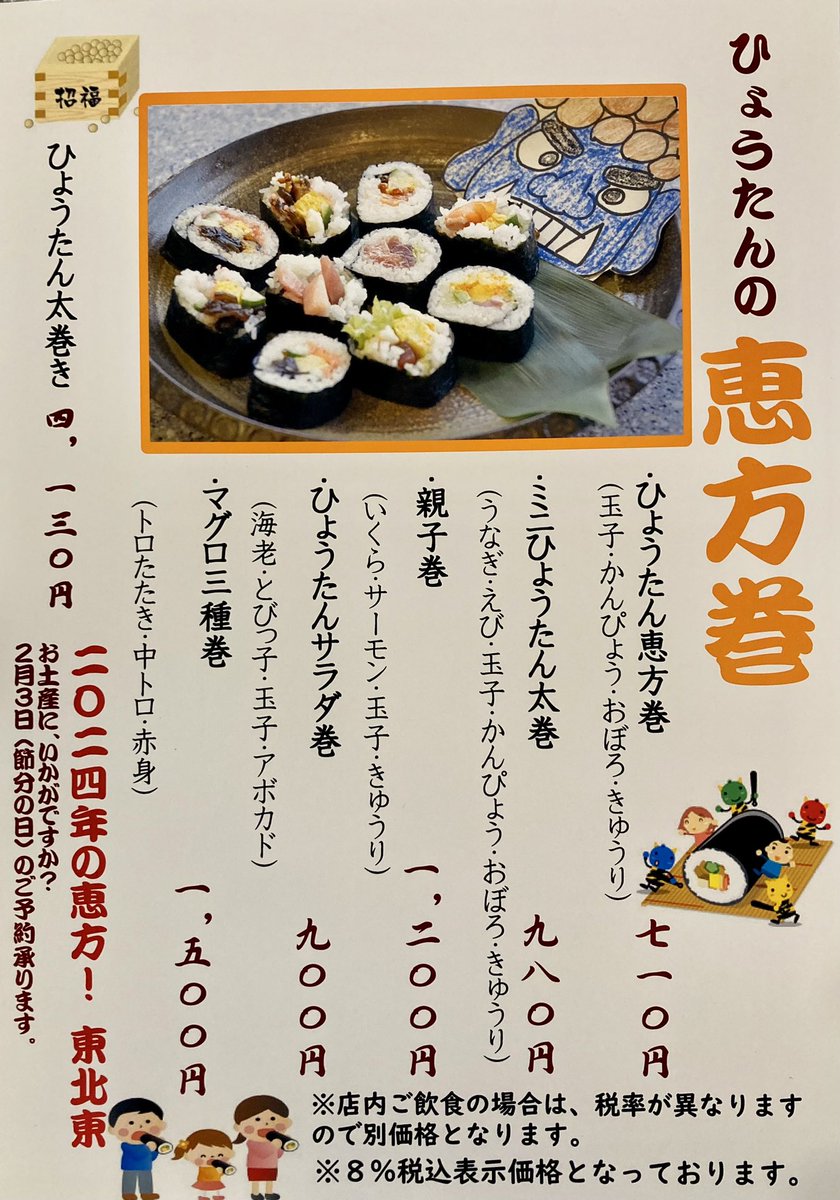 ひょうたんの
恵方巻
・ひょうたん恵方巻
（玉子・かんぴょう・おぼろ・きゅうり）
七一〇円
・ミニひょうたん太巻
（うなぎ・えび・玉子・かんぴょう・おぼろ・きゅうり）
九八〇円
・親子巻
（いくら・サーモン・玉子・きゅうり）
一,二〇〇円
・ひょうたんサラダ巻
（海老・とびっ子・玉子・アボカド）
九〇〇円
・マグロ三種巻
（トロたたき・中トロ・赤身）
一,五〇〇円
招福
ひょうたん太巻き 四,一三〇円
二〇二四年の恵方！ 東北東
お土産に、いかがですか？
２月３日（節分の日）のご予約承ります。
※店内ご飲食の場合は、税率が異なります
ので別価格となります。
※８％税込表示価格となっております。